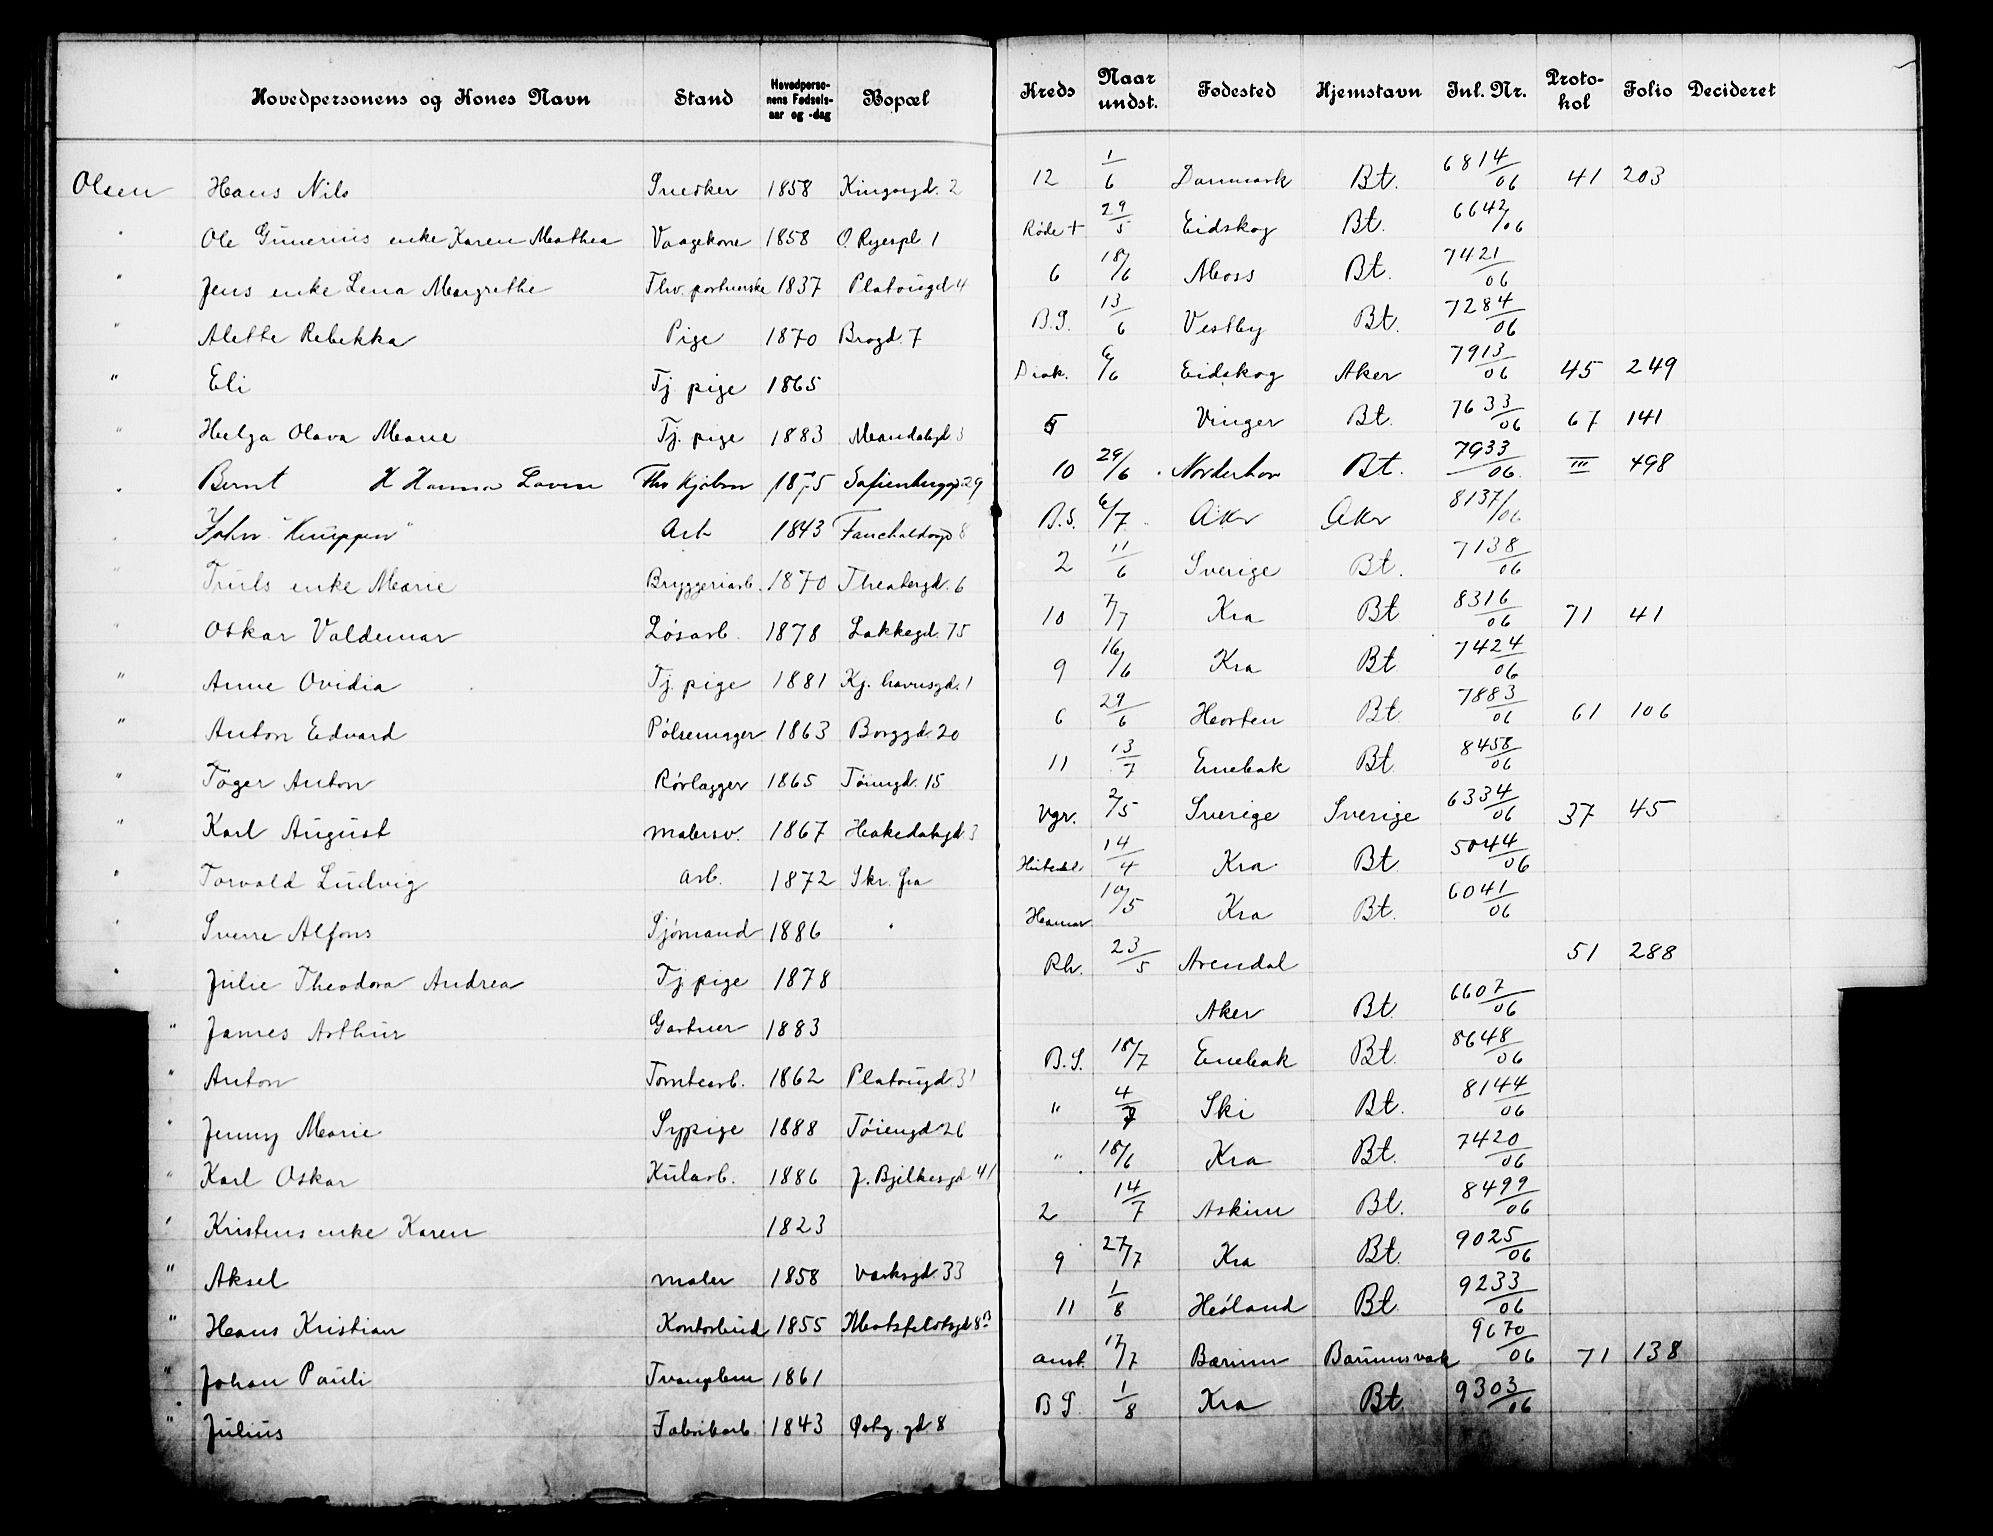 Hovedpersonens og Kones Navn Stand Hovedperso-nens Fødsels-aar og -dag Bopæl Kreds Naar undst. Fødested Hjemstavn Inl. Nr. Proto-kol Folio Decideret
Olsen Hans Nils Snedker 1858 Kingosgd. 2 12 1/6 Danmark Bt. 6814/06 41 203
" Ole Gunerius enke Karen Mathea Vaagekone 1858 O. Ryespl. 1 Røde + 29/5 Eidskog Bt. 6642/06
" Jens enke Lena Margrethe Thv. portnerske 1837 Platougd 4 6 18/6 Moss Bt. 7421/06
" Alette Rebekka Pige 1870 Brogd. 7 B.S. 13/6 Vestby Bt. 7284/06
" Eli Tj. pige 1865 Diak. 6/6 Eidskog Aker 7913/06 45 249
" Helga Olava Marie Tj. pige 1883 Maridalsgd 3 Vinger Bt. 7633/06 67 141
" Bernt H Hanna Lovise 1875 Sofienberggd. 29 10 29/6 Norderhov Bt. 7933/06 III 498
" John "Knuppen" Arb 1843 8 B.S. 6/7 Aker Aker 8137/06
" Truls enke Marie Bryggeriarb. 1870 Theatergd. 6 2 11/6 Sverige Bt. 7138/06
" Oskar Valdemar Løsarb. 1878 Lakkegd. 75 10 7/7 Kra Bt 8316/06 71 41
" Anne Ovidia Tj. pige 1881 Kj. havnsgd. 1 9 16/6 Kra Bt 7424/06
" Anton Edvard Pølsemager 1863 Borggd. 20 6 29/6 Horten Bt. 7883/06 61 106
" Tøger Anton Rørlægger 1865 Tøiengd. 15 11 13/7 Enebak Bt. 8458/06
" Karl August malersv. 1867 Hakedalsgd 3 Vgr. 2/5 Sverige Sverige 6334/06 37 45
" Torvald Ludvig Arb. 1872 Skr. fra 14/4 Kra Bt 5044/06
" Sverre Alfons Sjømand 1886 " Hamar 10/5 Kra Bt. 6041/06
" Julie Theodora Andrea Tj. pige 1878 Rh. 23/5 Arendal 51 288
" James Arthur Gartner 1883 Aker Bt 6607/06
" Anton Tomtearb. 1862 Platougd. 31 B.S. 18/7 Enebak Bt. 8648/06
" Jenny Marie Sypige 1888 Tøiengd 26 " 4/7 Ski Bt. 8144/06
" Karl Oskar Kularb. 1886 J. Bjelkesgd 41 " 18/6 Kra Bt. 7420/06
" Kristens enke Karen 1823 2 14/7 Askim Bt. 8499/06
" Aksel maler 1858 Verksgd. 33 9 27/7 Kra Bt. 9025/06
" Hans Kristian Kontorbud 1855 8 B 11 1/8 Høland Bt. 9233/06
" Johan Pauli 1861 anst. 17/7 Bærum Bærumsverk 9670/06 71 138
" Julius Fabrikarb. 1843 Østg. gd. 8 B S. 1/8 Kra Bt 9303/06